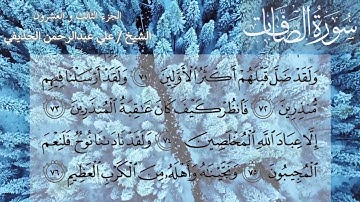 سورة الصافات
الجزء الثالث والعشرون
الشيخ / علي عبدالرحمن الحذيفي
وَلَقَدْ ضَلَّ قَبْلَهُمْ أَكْثَرُ الْأَوَّلِينَ ٧١ وَلَقَدْ أَرْسَلْنَا فِيهِم
مُّنذِرِينَ ٧٢ فَانظُرْ كَيْفَ كَانَ عَاقِبَةُ الْمُنذَرِينَ ٧٣
إِلَّا عِبَادَ اللَّهِ الْمُخْلَصِينَ ٧٤ وَلَقَدْ نَادَانَا نُوحٌ فَلَنِعْمَ
الْمُجِيبُونَ ٧٥ وَنَجَّيْنَاهُ وَأَهْلَهُ مِنَ الْكَرْبِ الْعَظِيمِ ٧٦